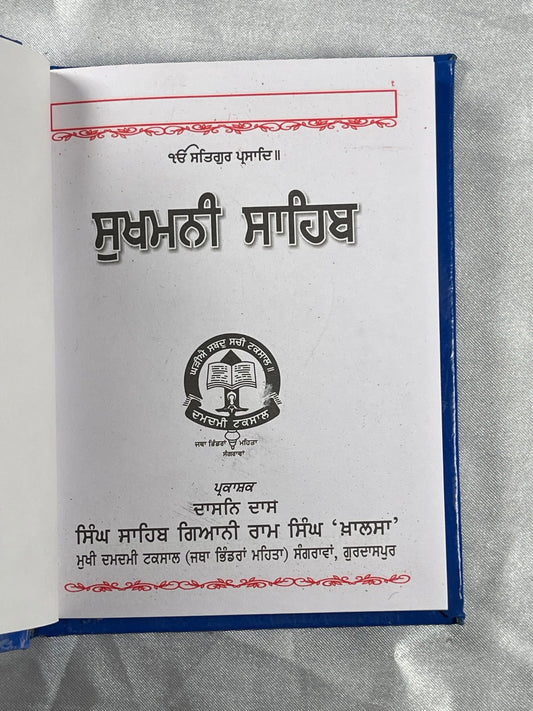 ੧ੴ ਸਤਿਗੁਰ ਪ੍ਰਸਾਦਿ॥
ਸੁਖਮਨੀ ਸਾਹਿਬ
ਘੜੀਐ ਸਬਦੁ ਸਚੀ ਟਕਸਾਲ॥
ਦਮਦਮੀ ਟਕਸਾਲ
ਜਥਾ ਭਿੰਡਰਾਂ ਮਹਿਤਾ
ਸੰਗਰਾਵਾਂ
ਪ੍ਰਕਾਸ਼ਕ
ਦਾਸਨਿ ਦਾਸ
ਸਿੰਘ ਸਾਹਿਬ ਗਿਆਨੀ ਰਾਮ ਸਿੰਘ ‘ਖ਼ਾਲਸਾ’
ਮੁਖੀ ਦਮਦਮੀ ਟਕਸਾਲ (ਜਥਾ ਭਿੰਡਰਾਂ ਮਹਿਤਾ) ਸੰਗਰਾਵਾਂ, ਗੁਰਦਾਸਪੁਰ